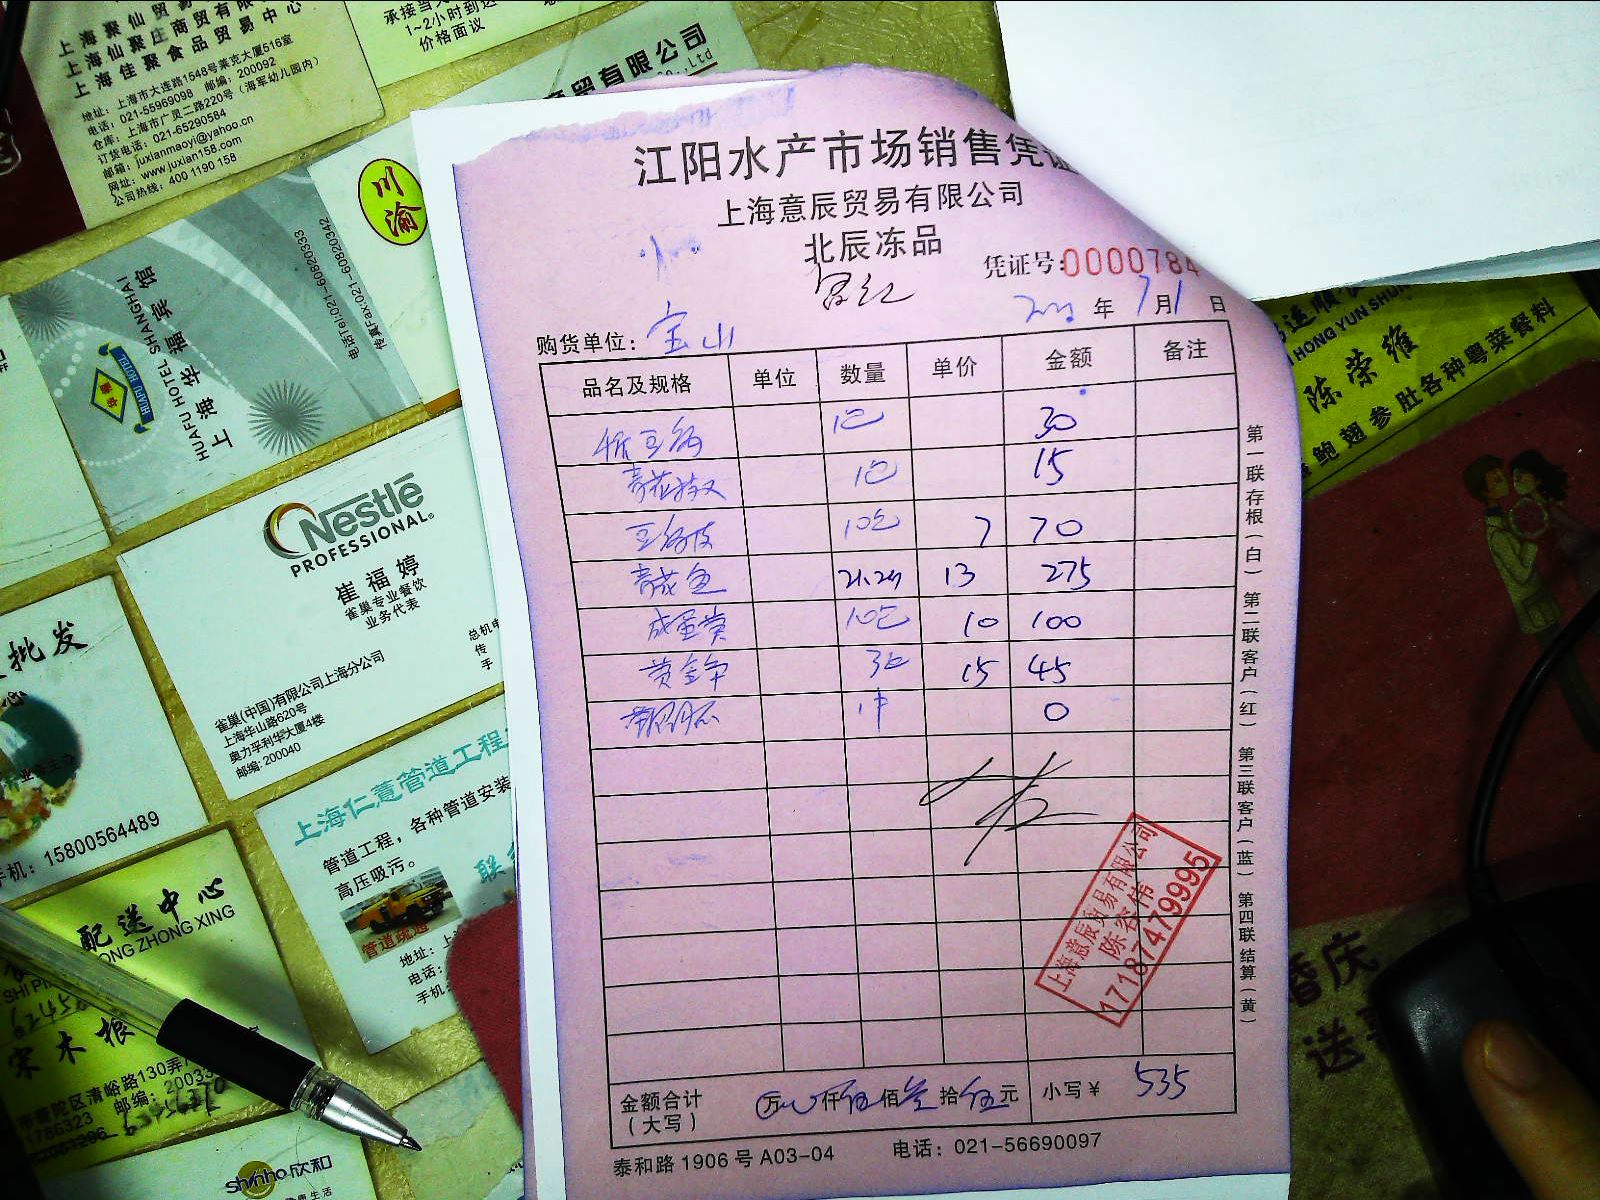 上海聚仙贸易
上海仙聚庄商贸有限
上海佳聚食品贸易中心
地址：上海市大连路1548号莱克大厦516室
电话：021-55969098 邮编：200092
仓库：上海市广灵二路220号（海军幼儿园内）
订货电话：021-65290584
邮箱：juxianmaoyi@yahoo.cn
网址：www.juxian158.com
公司热线：400 1190 158
承接当
1~2小时到达
价格面议
贸有限公司
Co.,Ltd
川渝
上海华福宾馆
HUAFU HOTEL SHANGHAI
电话Tel:021-60820333
传真Fax:021-60820342
Nestlé
PROFESSIONAL
崔福婷
雀巢专业餐饮
业务代表
总机电
传
手
雀巢(中国)有限公司上海分公司
上海华山路620号
奥力孚利华大厦4楼
邮编: 200040
批发
手机：15800564489
上海仁薏管道工程
管道工程，各种管道安装
高压吸污。
管道疏通
联
地址：上
电话：
手机：
配送中心
ONG ZHONG XING
宋木根
区清峪路130弄
邮编：2003
1786323
shinho欣和
江阳水产市场销售凭证
上海意辰贸易有限公司
北辰冻品
凭证号:0000784
年 7月1日
购货单位：宝山
品名及规格 单位 数量 单价 金额 备注
1包 30
1包 15
10包 7 70
青花鱼 21.2斤 13 275
咸蛋黄 10包 10 100
3包 15 45
1件 0
上海意辰贸易有限公司
陈容伟
17187479995
金额合计（大写） 万 仟伍佰叁拾伍元 小写￥ 535
泰和路1906号A03-04 电话：021-56690097
第一联存根（白） 第二联客户（红） 第三联客户（蓝） 第四联结算（黄）
HONG YUN SHUN
陈荣雍
鲍翅参肚各种粤菜餐料
婚庆
送